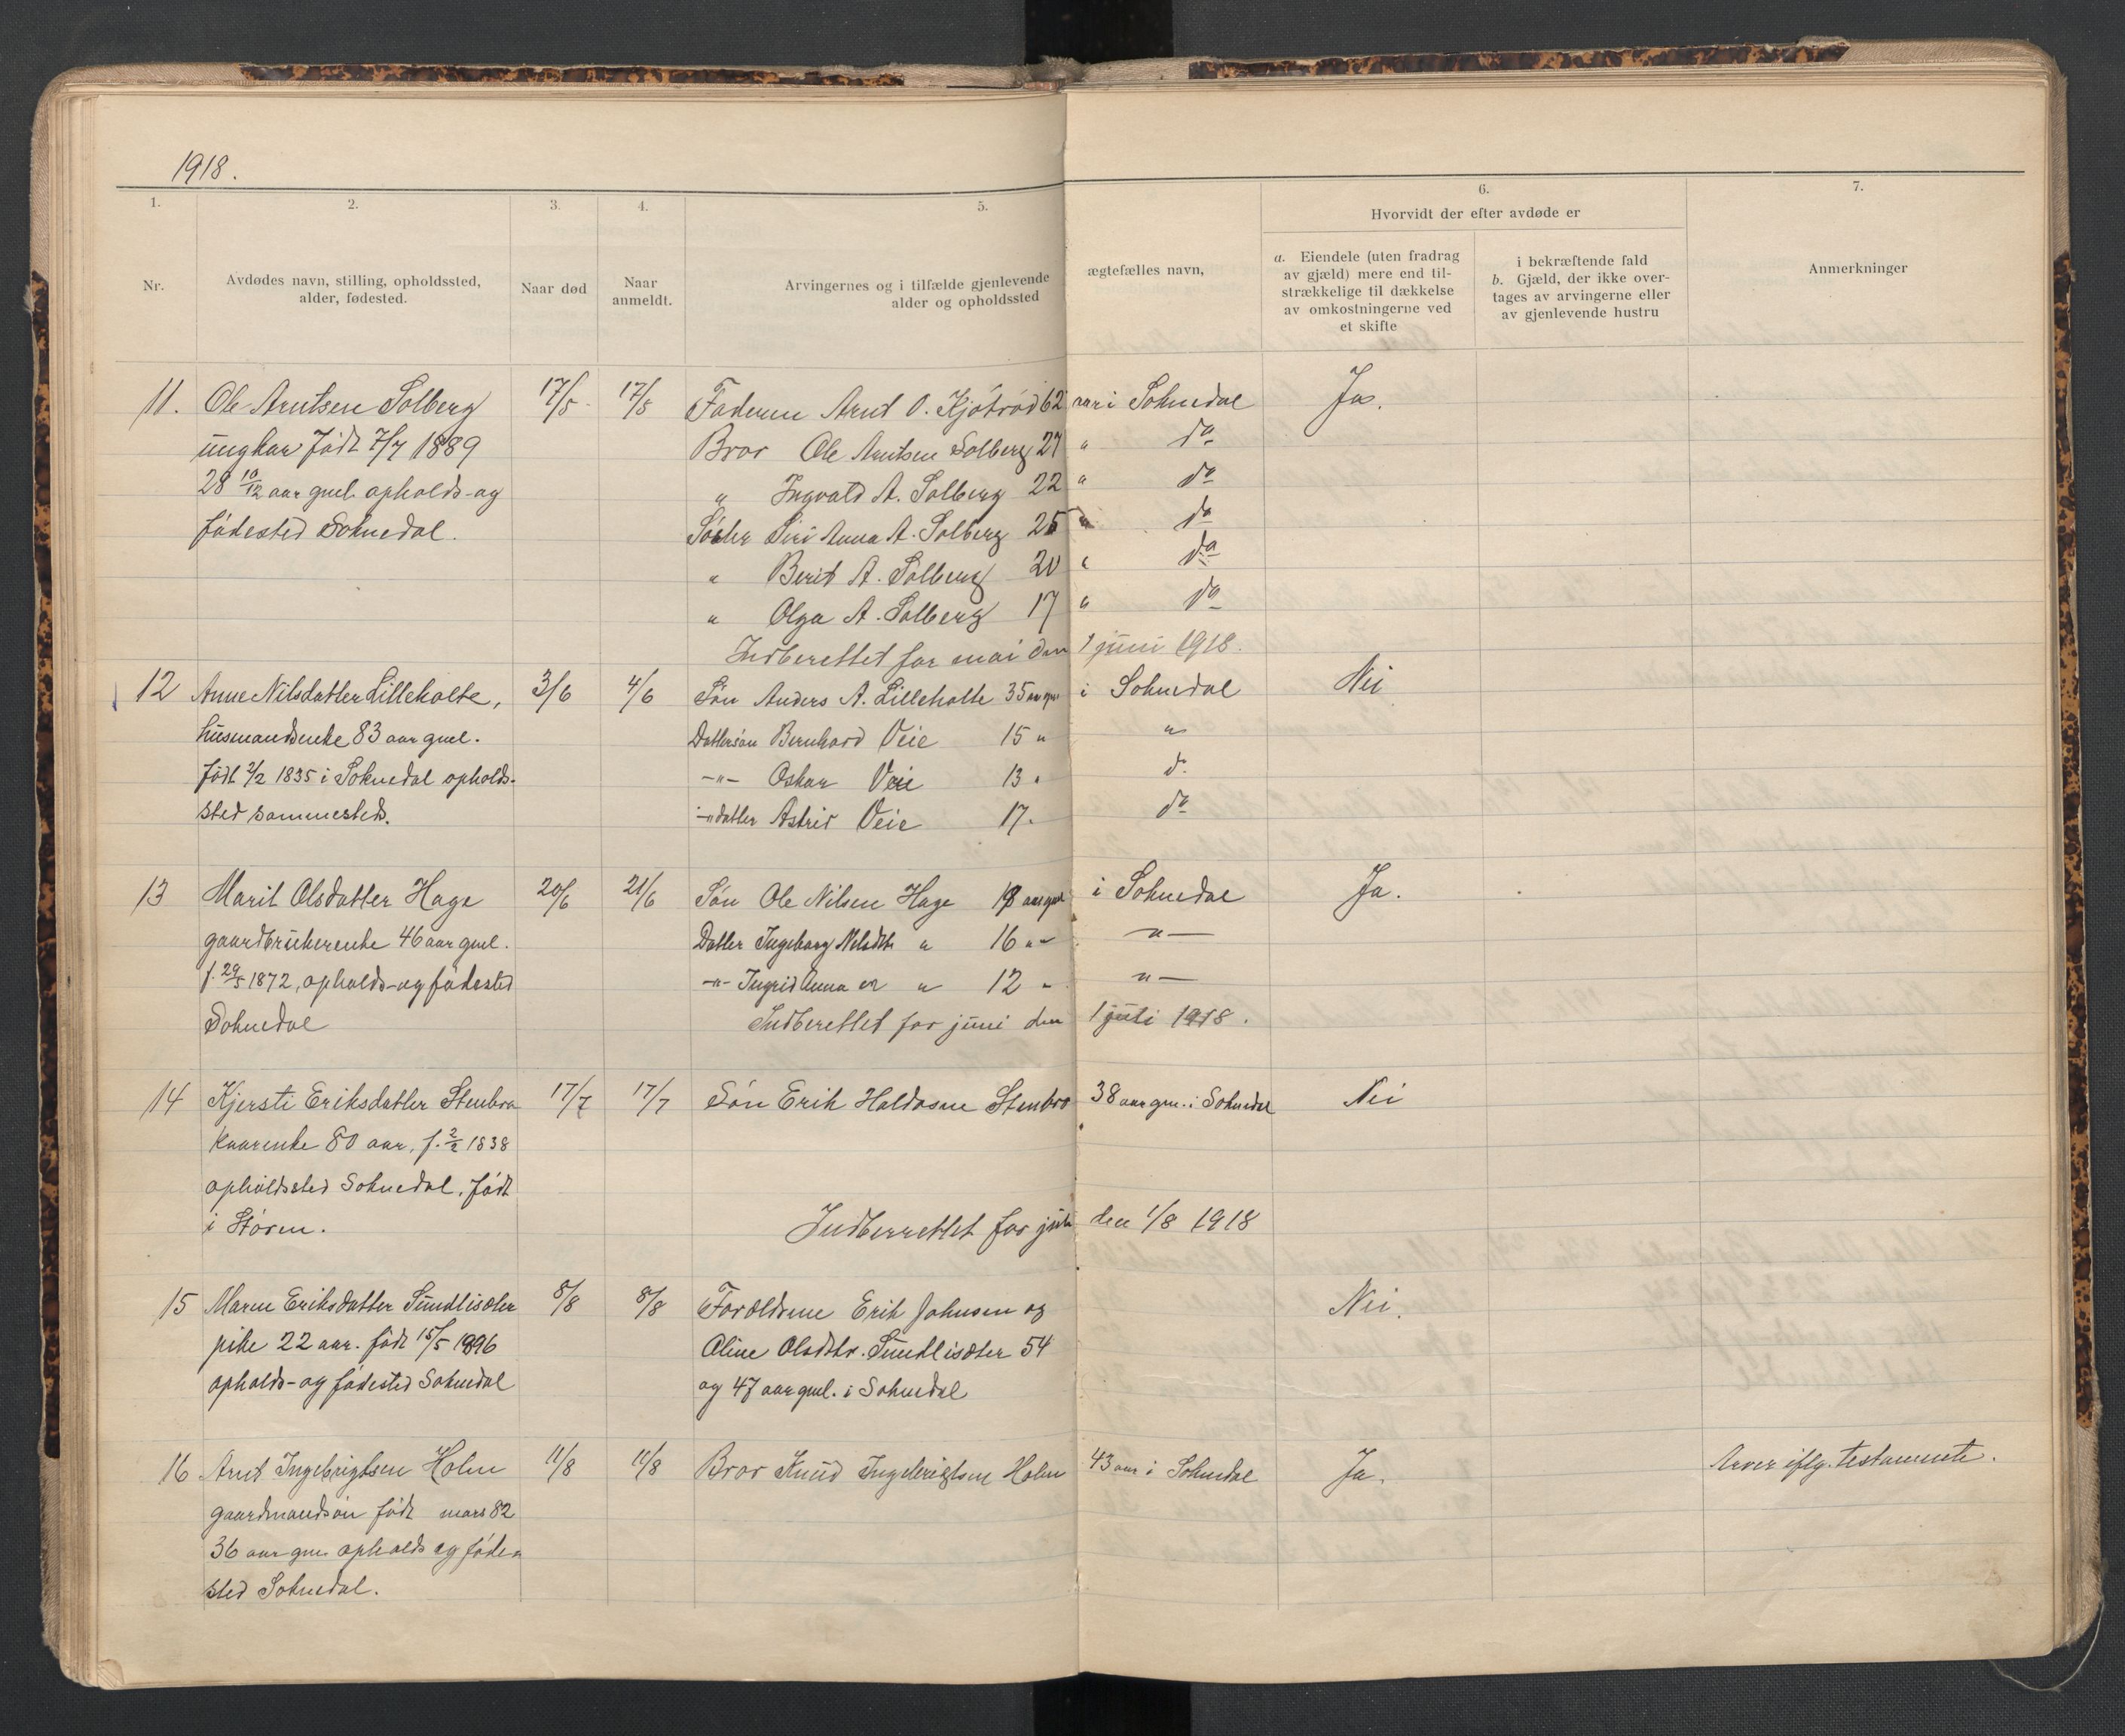 1918.
1. 2. 3. 4. 5. 6. 7.
Hvorvidt der efter avdøde er
Nr.
Avdødes navn, stilling, opholdssted,
alder, fødested.
Naar død
Naar
anmeldt.
Arvingernes og i tilfælde gjenlevende ægtefælles navn,
alder og opholdssted
a. Eiendele (uten fradrag
av gjæld) mere end til-
strækkelige til dækkelse
av omkostningerne ved
et skifte
i bekræftende fald
b. Gjæld, der ikke over-
tages av arvingerne eller
av gjenlevende hustru
Anmerkninger
11. Ole Arntsen Solberg 17/5 17/5 Faderen Arnt O. Kjøtrød 62 aar i Soknedal Ja.
ungkar født 7/7 1889 Bror Ole Arntsen Solberg 27 " do
28 10/12 aar gml. opholds- og " Ingvald A. Solberg 22 " do
fødested Soknedal. Søster Siri Anna A. Solberg 25 " do
" Berit A. Solberg 20 " do
" Olga A. Solberg 17 " do
Indberettet for mai den 1 juni 1918.
12 Anne Nilsdatter Lilleholte, 3/6 4/6 Søn Anders A. Lilleholte 35 aar gm i Soknedal Nei
husmandsenke 83 aar gml. Dattersøn Bernhard Veie 15 " "
født 2/2 1835 i Soknedal opholds- -"- Oskar Veie 13 " d.
sted sammesteds. -"datter Astrid Veie 17. do
13 Marit Olsdatter Hage 20/6 21/6 Søn Ole Nilsen Hage 18 aar gml i Soknedal Ja.
gaardbrukerenke 46 aar gml. Datter Ingeborg Nilsdtr " 16 " " -"-
f. 29/5 1872, opholds- og fødested -"- Ingrid Anna " " 12 " "-
Soknedal Indberettet for juni den 1 juli 1918.
14 Kjersti Eriksdatter Stenbro 17/7 17/7 Søn Erik Haldosen Stenbro 38 aar gm. i Soknedal Nei
kaarenke 80 aar, f. 2/2 1838
opholdssted Soknedal, født
i Støren. Indberrettet for juli den 1/8 1918
15 Maren Eriksdatter Sundlisæter 8/8 8/8 Forældrene Erik Johnsen og Nei.
pike 22 aar. født 15/5 1896 Oline Olsdtr. Sundlisæter 54
opholds- og fødested Soknedal og 47 aar gml. i Soknedal
16 Arnt Ingebrigtsen Holm 11/8 11/8 Bror Knud Ingebrigtsen Holm 43 aar i Soknedal Ja. Arver iflg. testamente.
gaardmandsøn født mars 82
36 aar gm opholds og føde-
sted Soknedal.